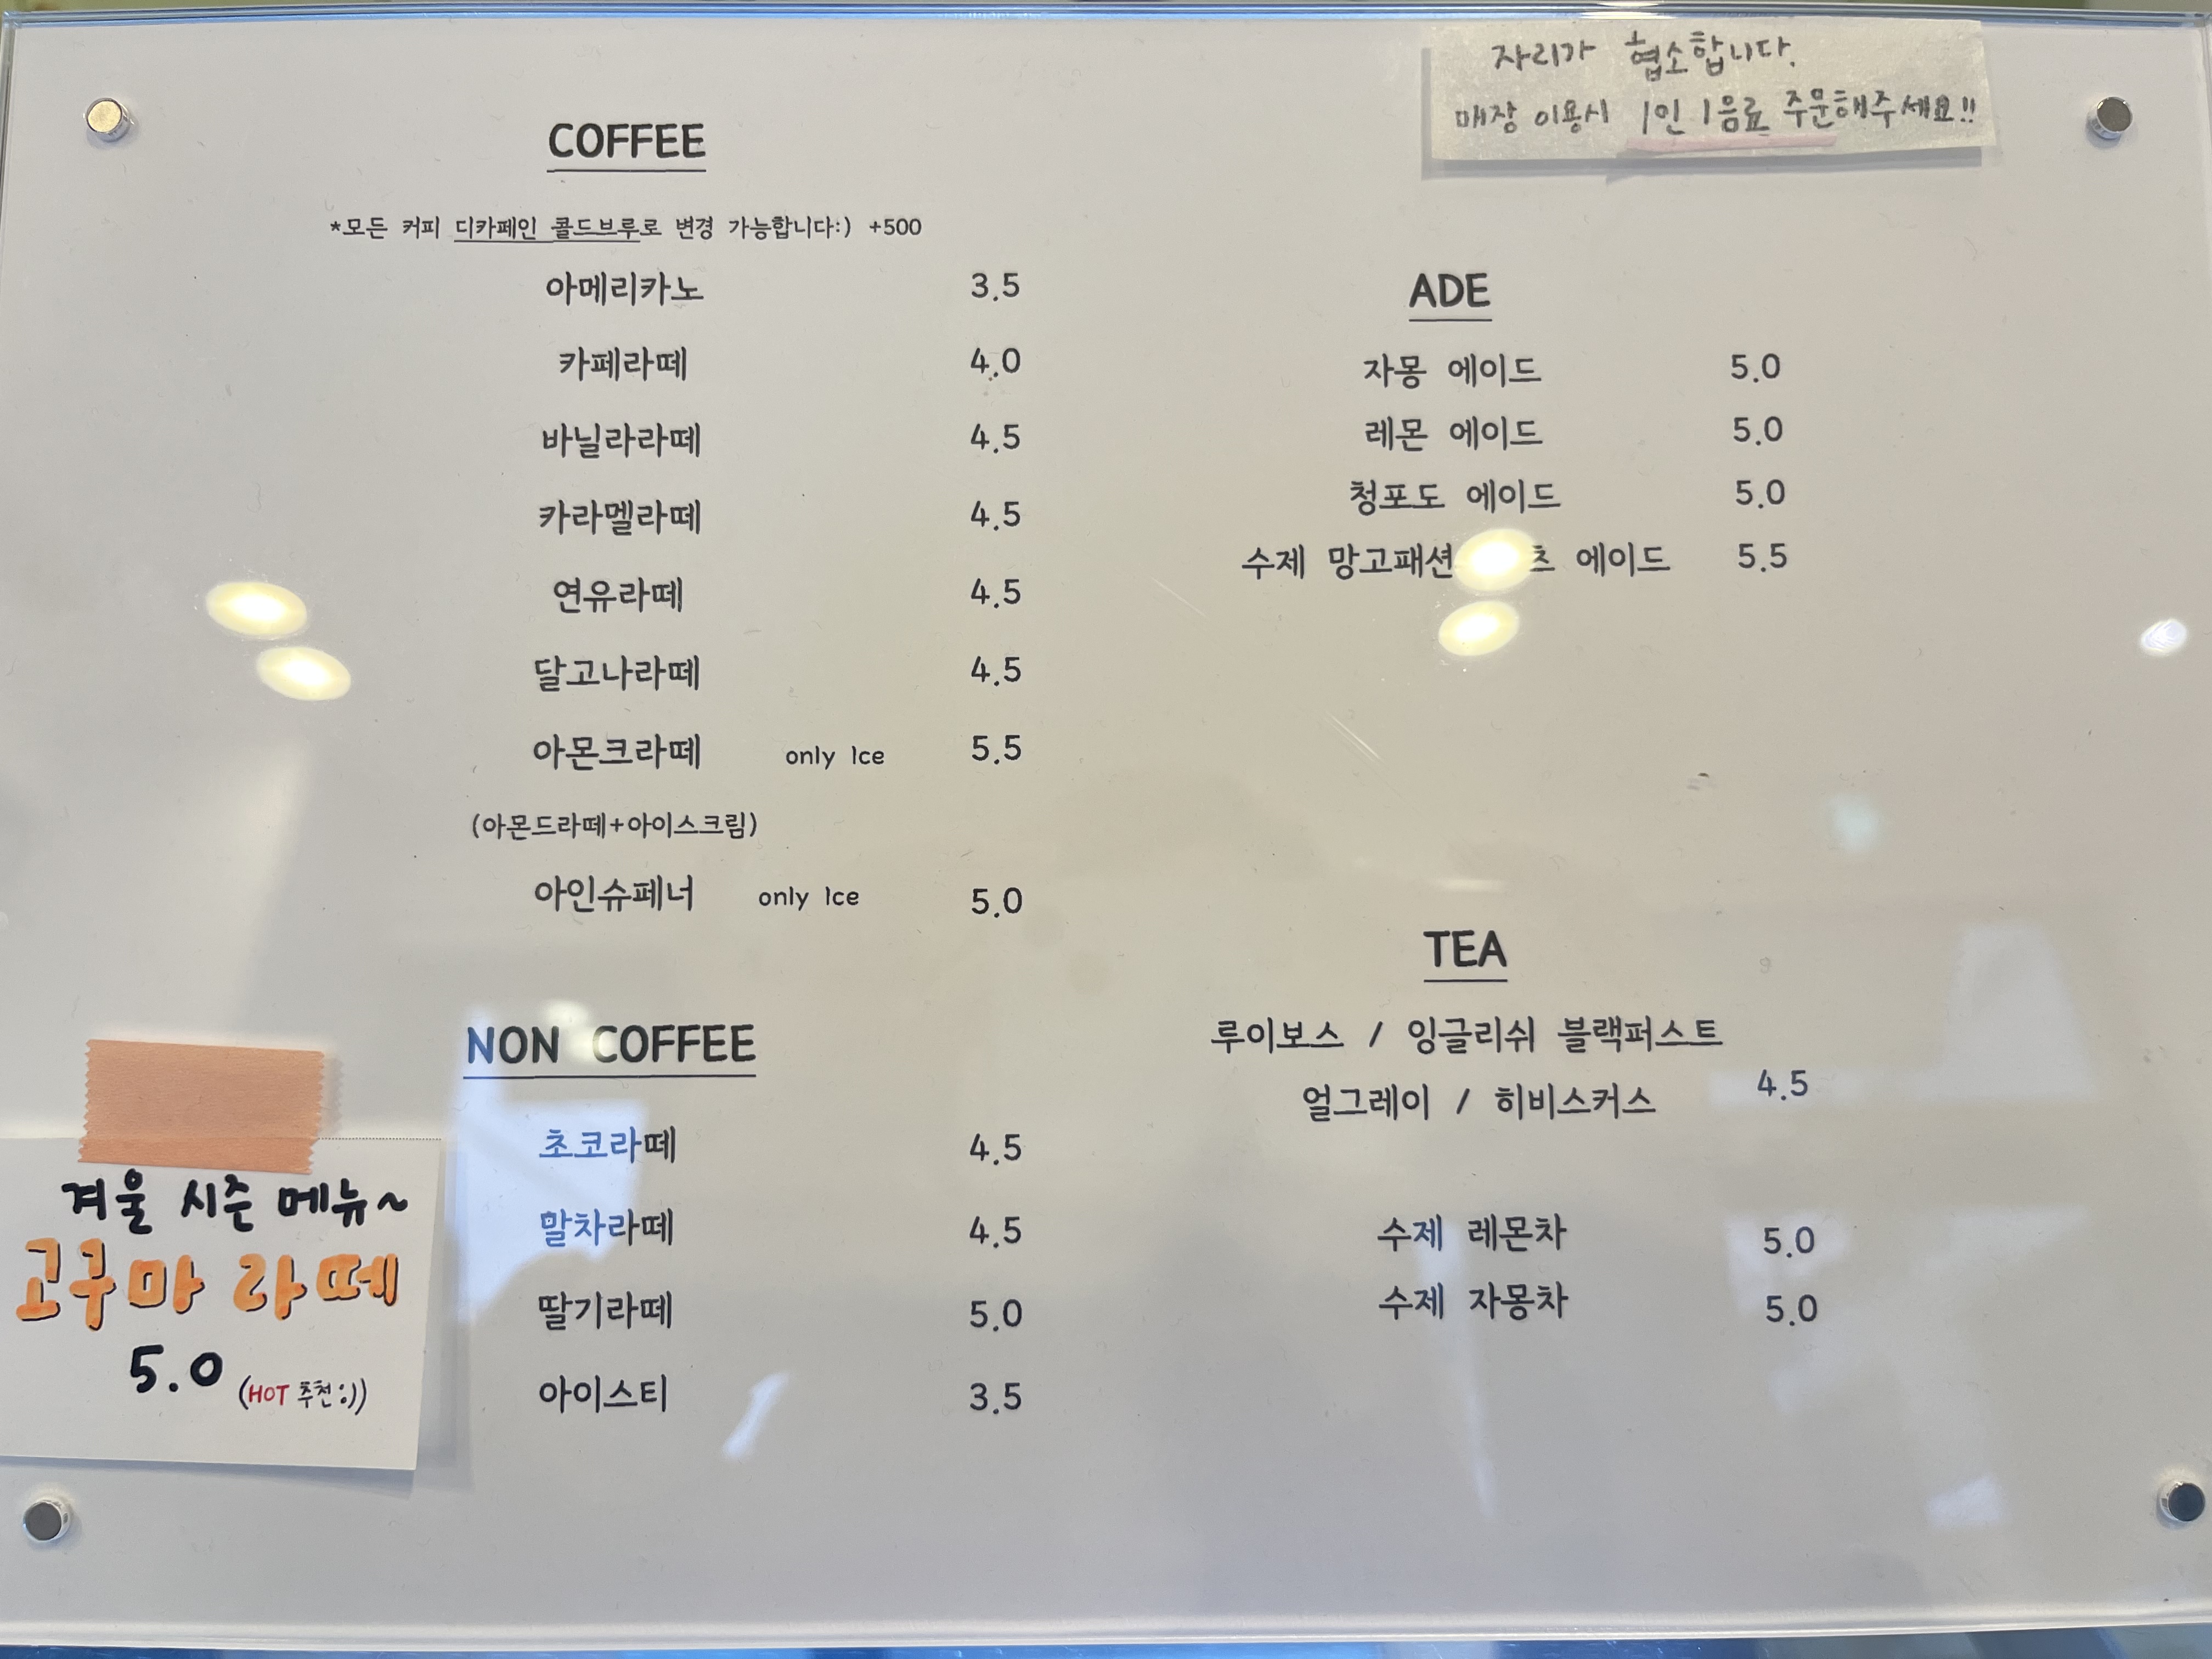 자리가 협소합니다.
매장 이용시 1인 1음료 주문해주세요!!
COFFEE
*모든 커피 디카페인 콜드브루로 변경 가능합니다:) +500
아메리카노 3.5
카페라떼 4.0
바닐라라떼 4.5
카라멜라떼 4.5
연유라떼 4.5
달고나라떼 4.5
아몬크라떼 only Ice 5.5
(아몬드라떼+아이스크림)
아인슈페너 only Ice 5.0
NON COFFEE
초코라떼 4.5
말차라떼 4.5
딸기라떼 5.0
아이스티 3.5
겨울 시즌 메뉴~
고구마 라떼
5.0 (HOT 추천:))
ADE
자몽 에이드 5.0
레몬 에이드 5.0
청포도 에이드 5.0
수제 에이드 5.5
TEA
루이보스 / 잉글리쉬 블랙퍼스트
얼그레이 / 히비스커스 4.5
수제 레몬차 5.0
수제 자몽차 5.0